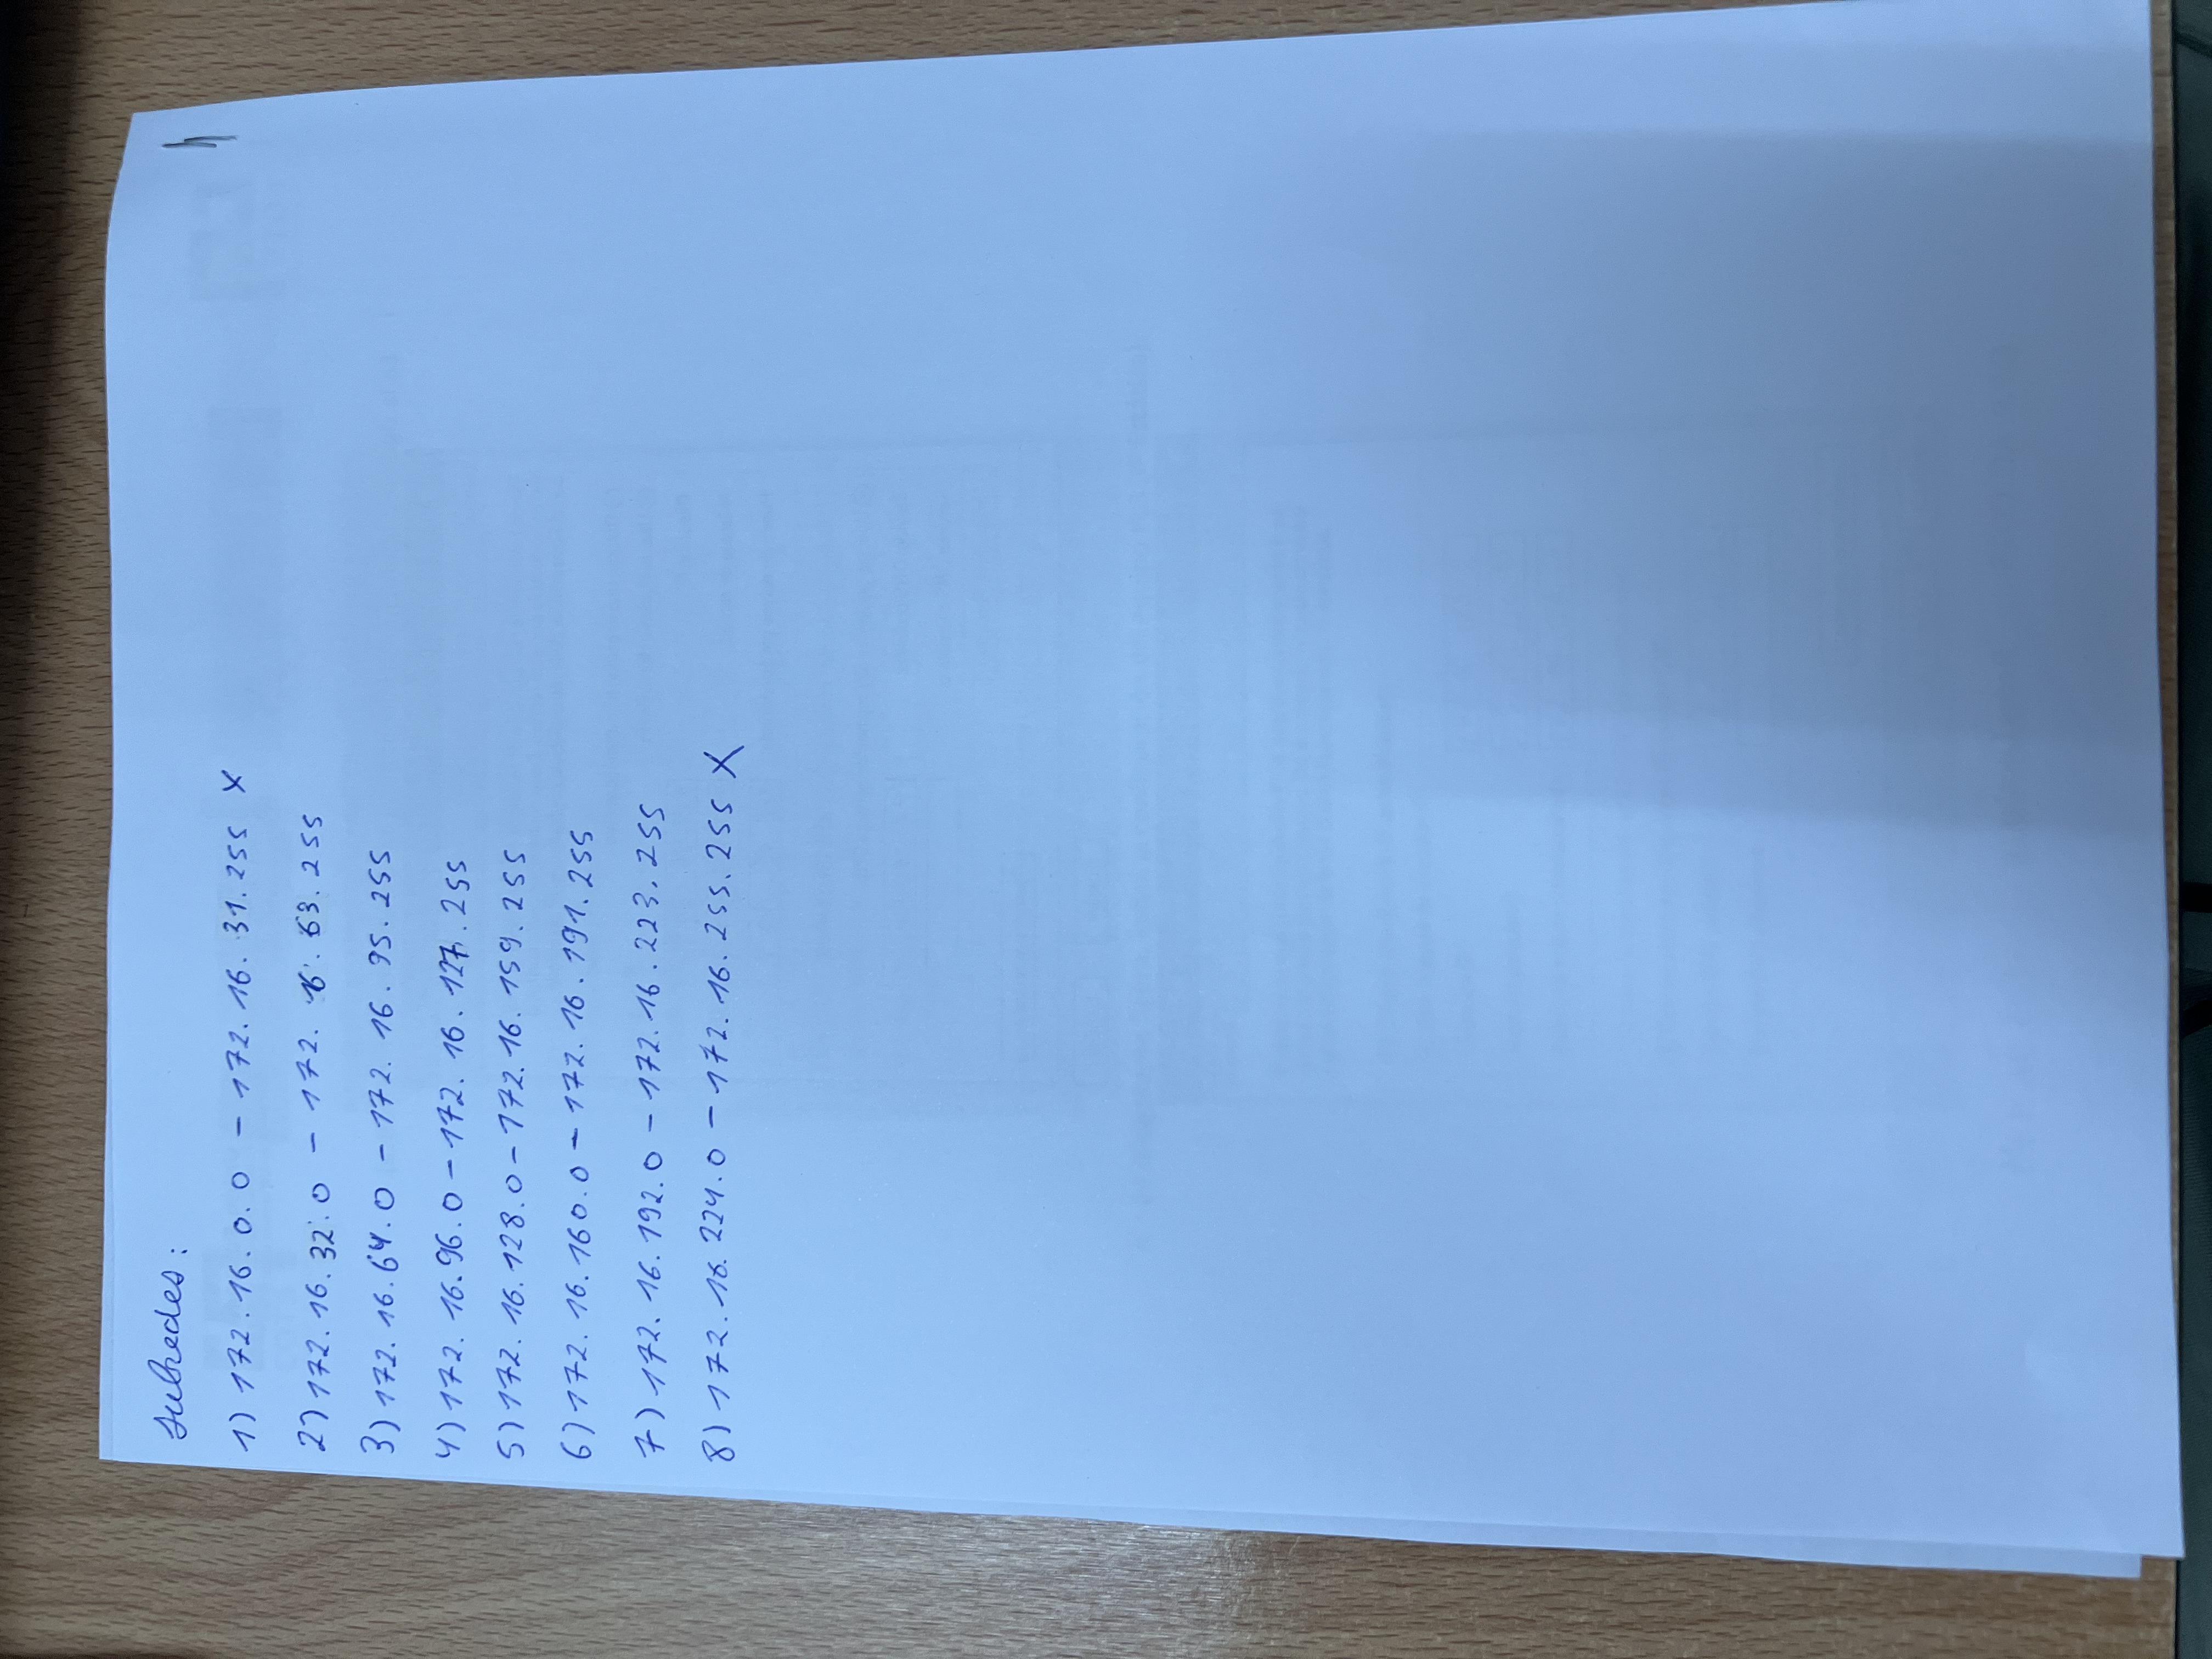 Subredes:
1) 172.16.0.0 - 172.16.31.255 X
2) 172.16.32.0 - 172.16.63.255
3) 172.16.64.0 - 172.16.95.255
4) 172.16.96.0 - 172.16.127.255
5) 172.16.128.0 - 172.16.159.255
6) 172.16.160.0 - 172.16.191.255
7) 172.16.192.0 - 172.16.223.255
8) 172.16.224.0 - 172.16.255.255 X